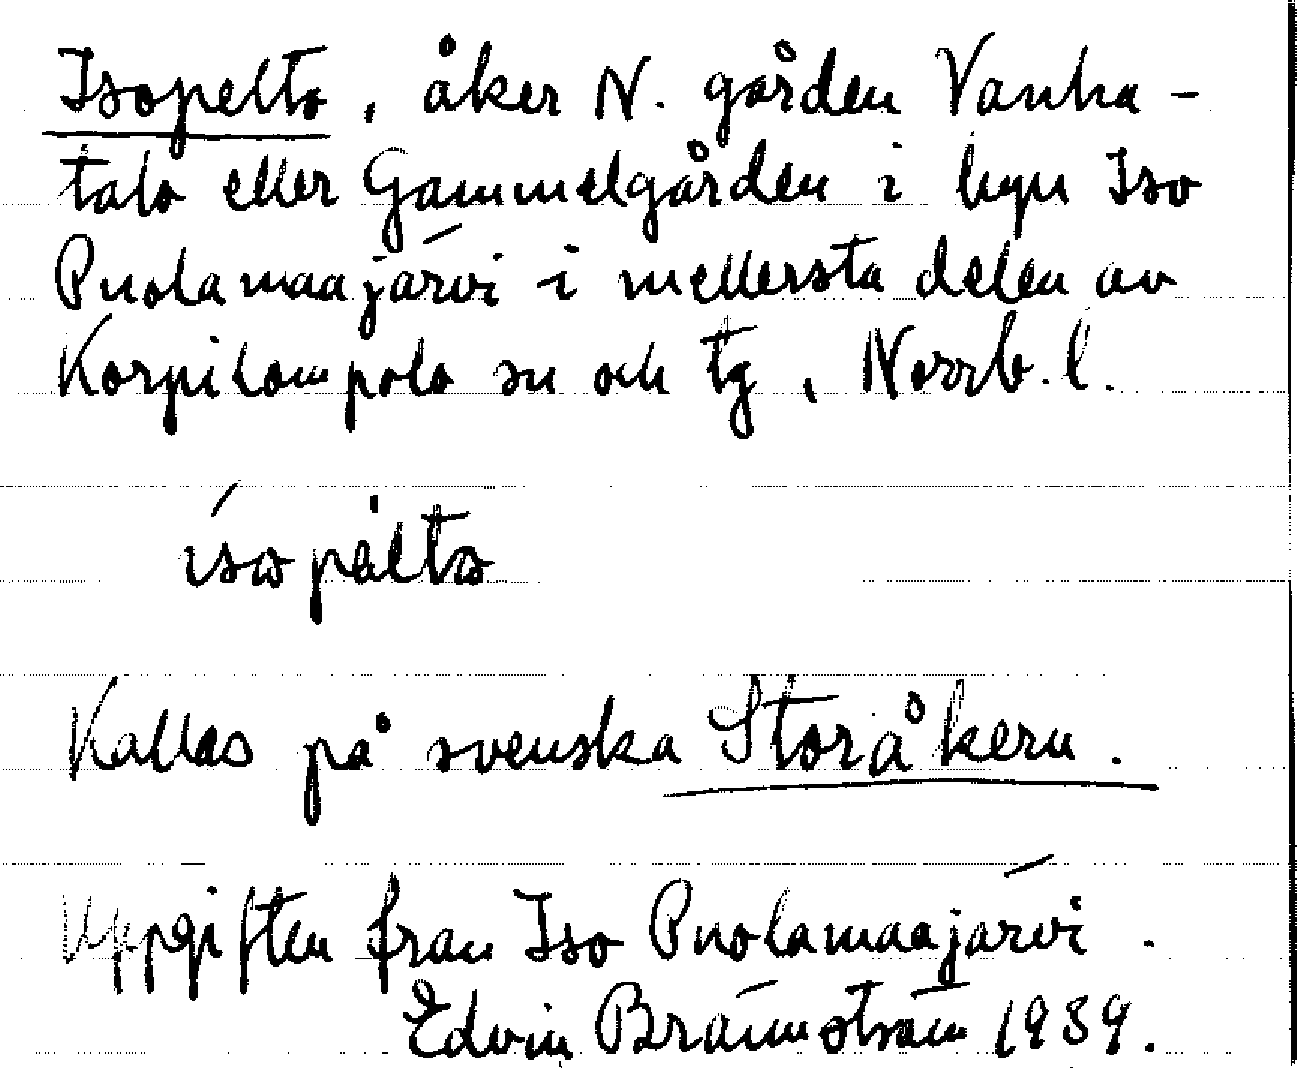 Isopelto, åker N. gården Vanha-
talo eller Gammelgården i byn Iso
Puolamaajärvi i mellersta delen av
Korpilompolo sn och tg, Norrb. l.
Kallas på svenska Storåkern.
Uppgiften från Iso Puolamaajärvi.
Edvin Brännström 1939.